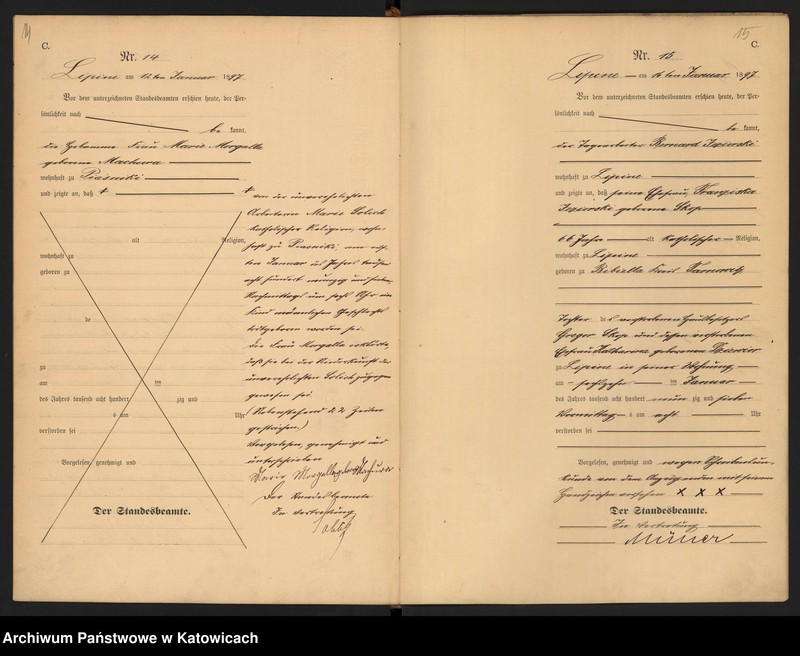 14
C.
Nr. 14
Lipine am 12ten Januar 1897
Vor dem unterzeichneten Standesbeamten erschien heute, der Per-
sönlichkeit nach
be kannt,
die Hebamme Frau Marie Morgalla
geborene Machura
wohnhaft zu Piasniki
und zeigte an, daß
alt Religion,
wohnhaft zu
geboren zu
de
zu
am ten
des Jahres tausend acht hundert zig und
um Uhr
verstorben sei
Vorgelesen, genehmigt und
Der Standesbeamte.
von der unverehelichten
Arbeiterin Marie
katholischer Religion, wohn-
haft zu Piasniki am
ten Januar des Jahres tausend
acht hundert neunzig und sieben
Nachmittags um sechs Uhr ein
Kind männlichen Geschlechts
todtgeboren worden sei.
Die Frau Morgalla erklärte,
daß sie bei der Niederkunft der
unverehelichten zugegen
gewesen sei
(Nebenstehend 22 Zeilen
gestrichen.)
Vorgelesen, genehmigt und
unterschrieben
Marie Morgalla geb. Machura
Der Standesbeamte
In Vertretung
15
C.
Nr. 15
Lipine am 16ten Januar 1897
Vor dem unterzeichneten Standesbeamten erschien heute, der Per-
sönlichkeit nach
be kannt,
der Tagearbeiter Bernard
wohnhaft zu Lipine
und zeigte an, daß seine Ehefrau Franziska
geborene Skop
66 Jahre alt katholischer Religion,
wohnhaft zu Lipine
geboren zu Kreis Tarnowitz
Tochter de s verstorbenen
Gregor Skop und dessen verstorbenen
Ehefrau Katharina geborenen
zu Lipine in seiner Wohnung
am sechszehn ten Januar
des Jahres tausend acht hundert neun zig und sieben
Vormittag s um acht Uhr
verstorben sei
Vorgelesen, genehmigt und wegen Schreibensun-
kunde von dem Anzeigenden mit seinem
Handzeichen versehen X X X
Der Standesbeamte.
In Vertretung
Archiwum Państwowe w Katowicach